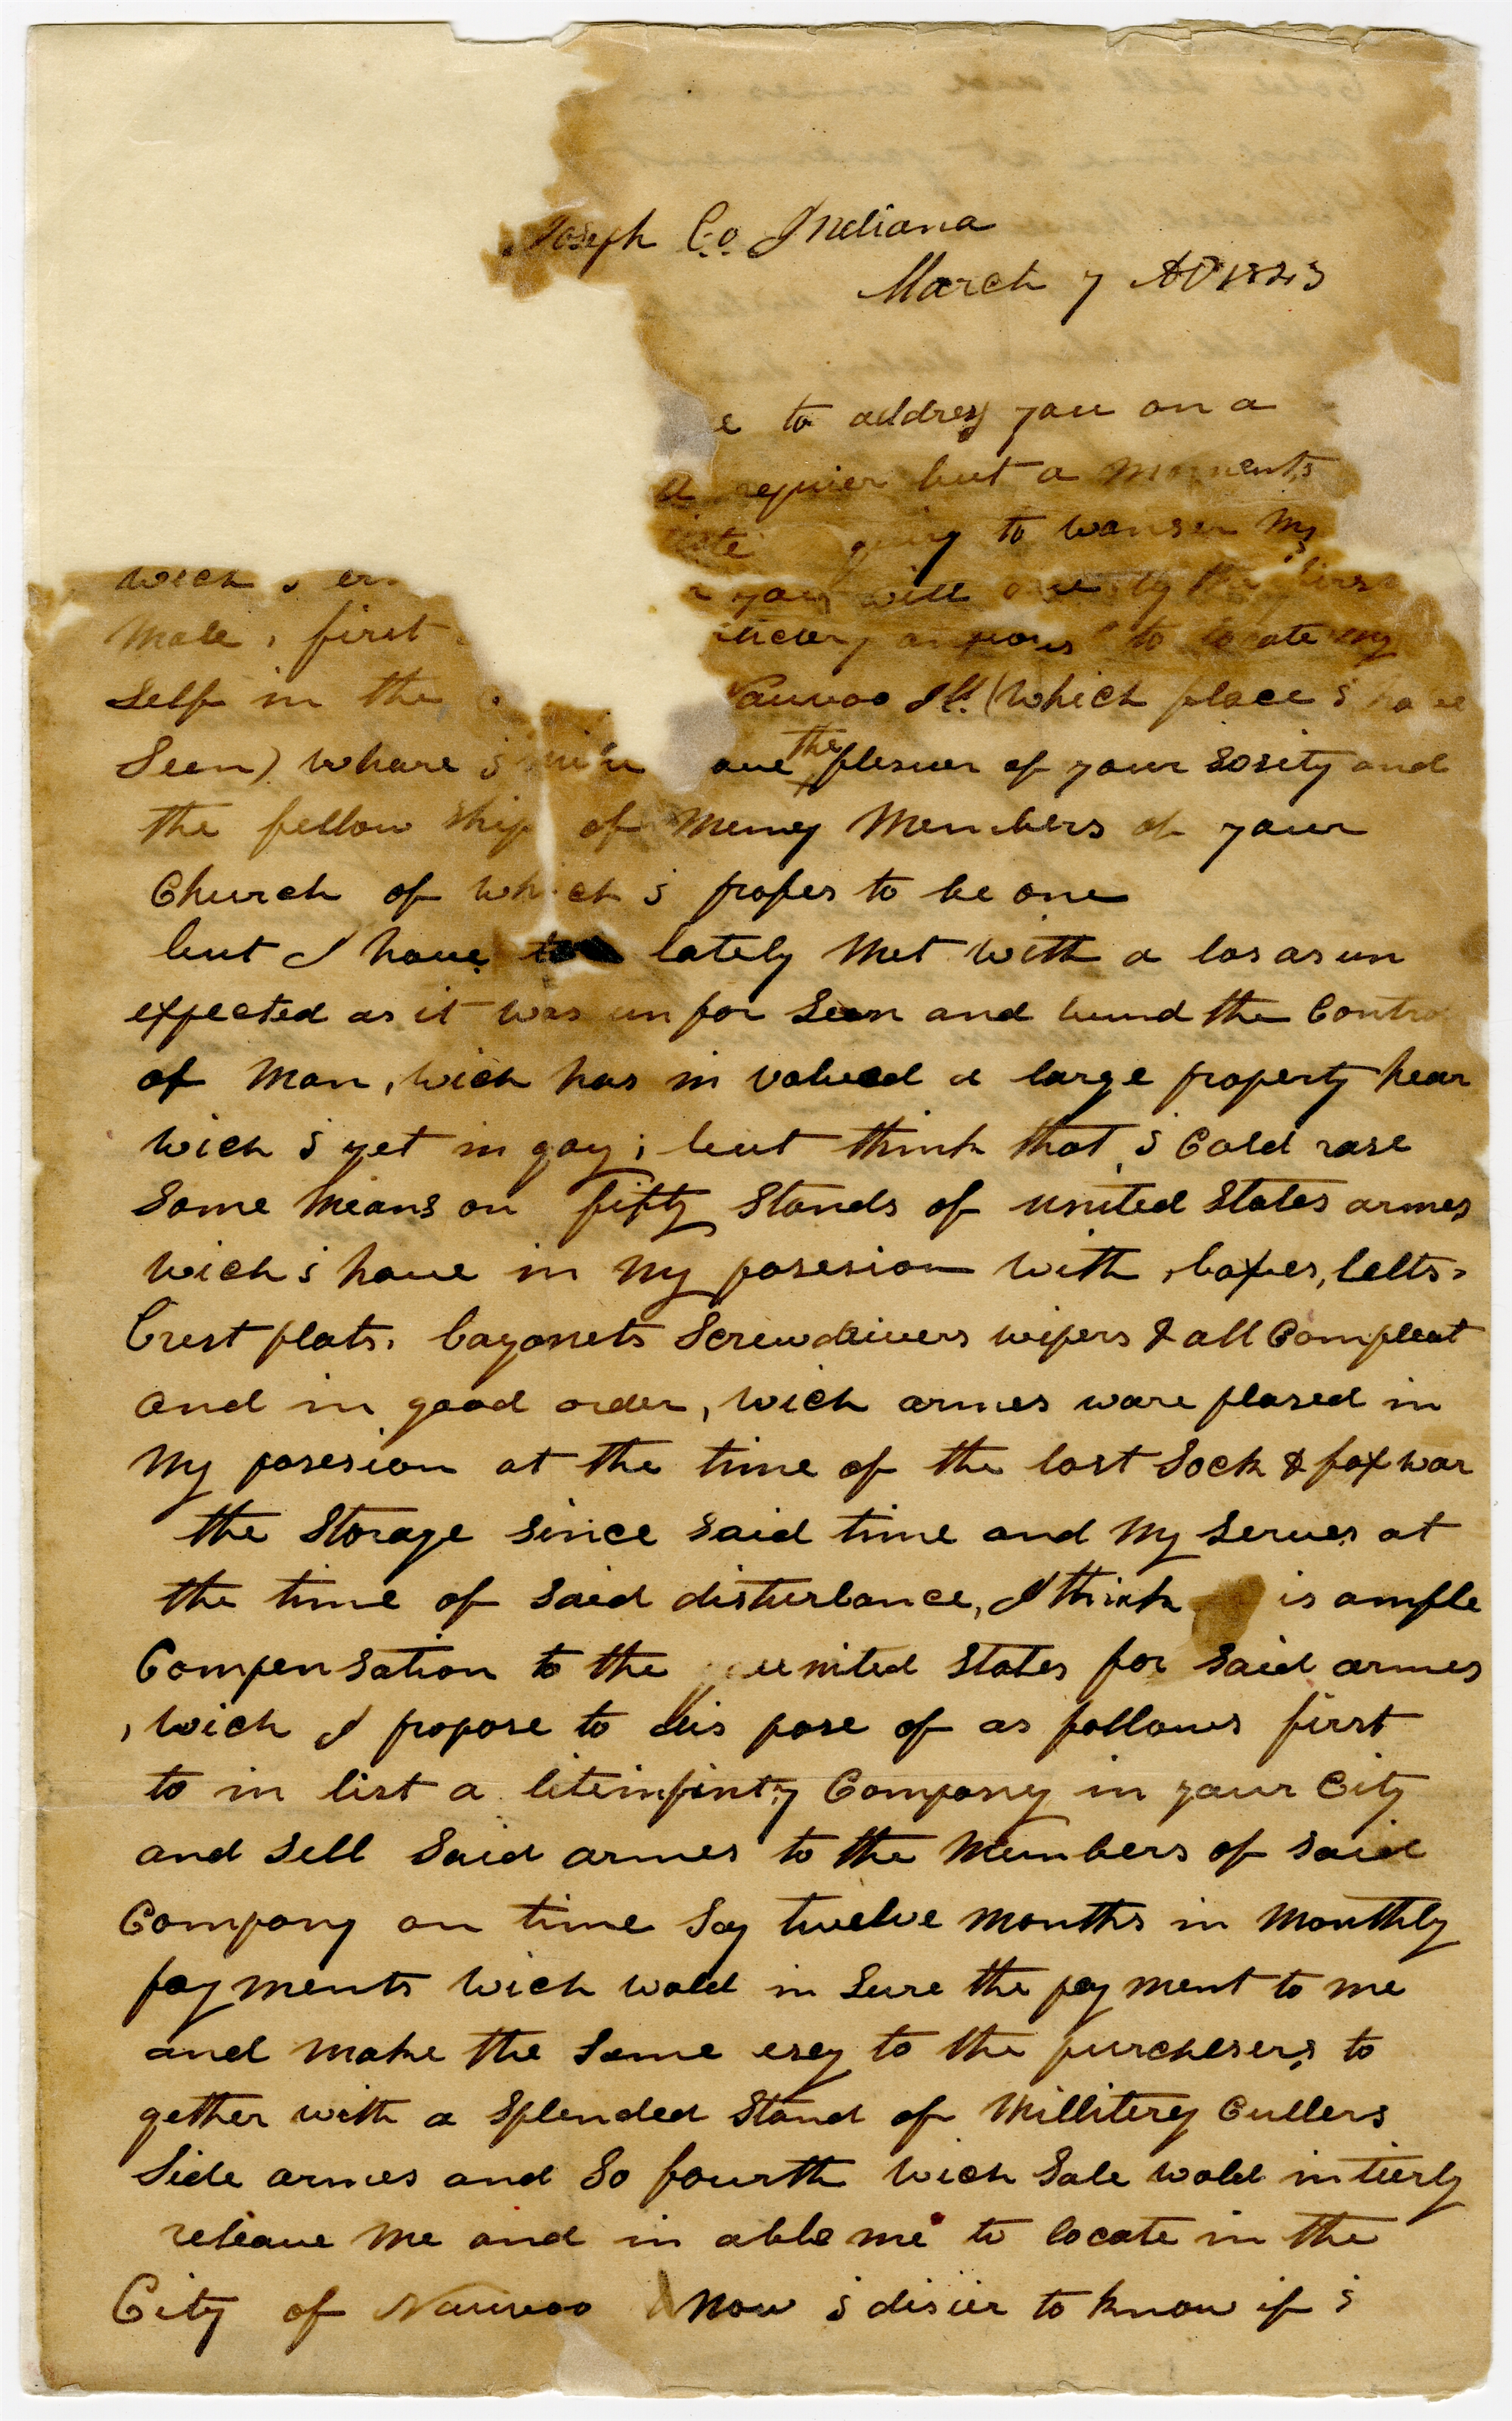 Joseph Co. Indiana
March 7 AD 1843
to address you on a
requier but a moments
to wanser my
wich i you will by the first
male, first to locate my
self in the Nauvoo Ill. (which place i have
seen) whare i the plesuer of your sosity and
the fellow ship of meney members of your
Church of which i profes to be one
but I have lately met with a los as un
expected as it was un for seen and bund the Control
of man, wich has in valued a large property hear
wich i yet in goy; but think that i Cold rase
some means on fifty stands of united states armes
wich i have in my posesion with, boxes, belts,
brest plats, bayonets screwdrivers wipers & all Compleat
and in good order, wich armes ware plased in
my posesion at the time of the last sock & fox war
the storage since said time and my serves at
the time of said disturbance, I think is ample
Compensation to the united states for said armes
, wich I propose to dis pose of as follows first
to in list a liteinfinty Company in your City
and sell said armes to the members of said
Company on time say twelve months in monthly
payments wich wold in sure the pay ment to me
and make the same esey to the purchesers to
gether with a splended stand of millitery Cullers
side armes and so fourth wich sale wold intierly
releave me and in able me to locate in the
City of Nauvoo now i disier to know if i